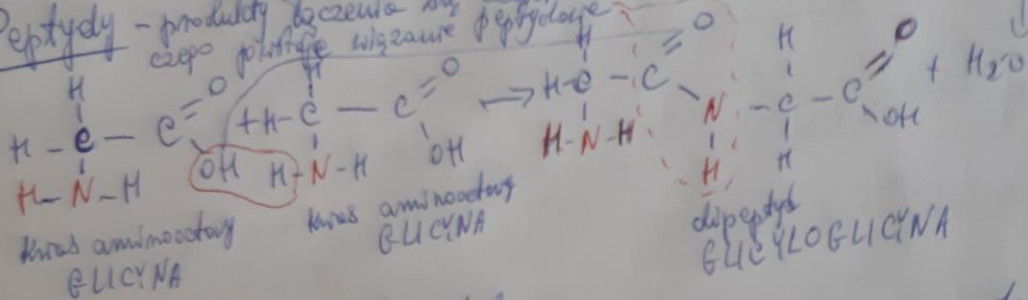 Peptydy - produkty łączenia się
czego powstaje wiązanie peptydowe
H H H O H O
H-C-C=O +H-C-C=O → H-C-C N-C-C + H2O
OH OH H OH
H-N-H H-N-H H-N-H H
kwas aminooctowy
GLICYNA
kwas aminooctowy
GLICYNA
dipeptyd
GLICYLOGLICYNA